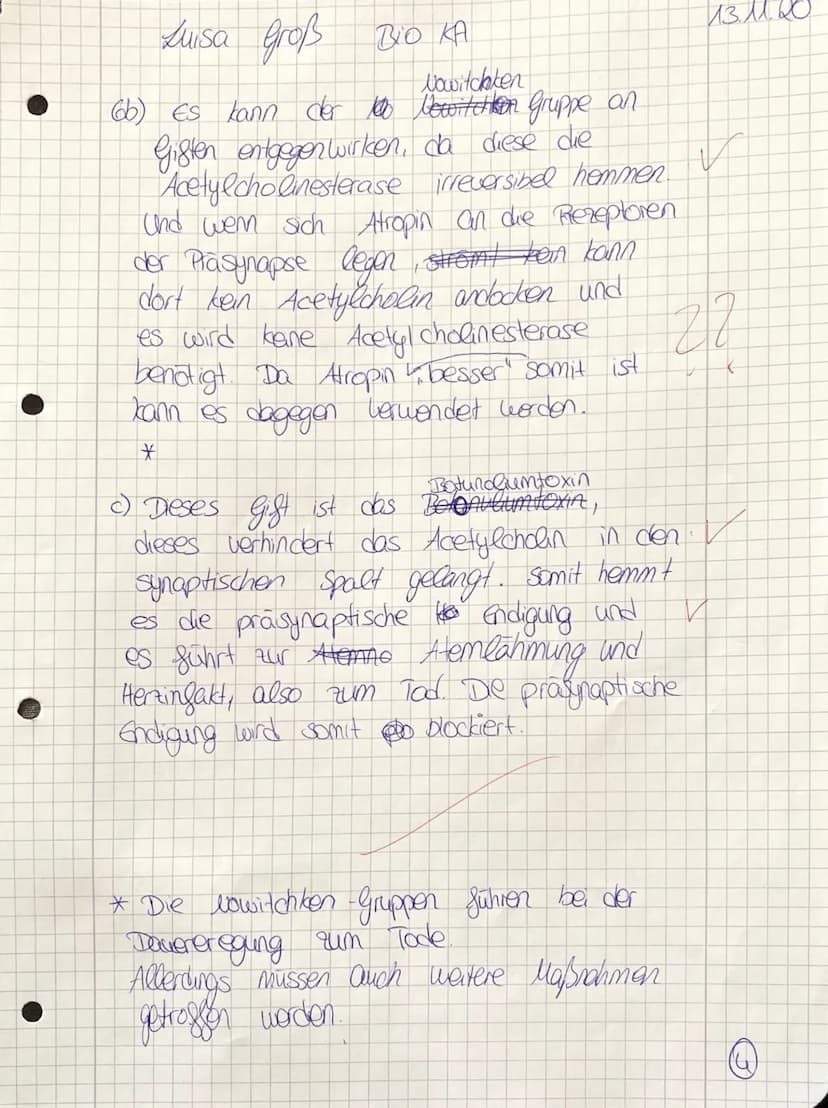 Luisa Groß Bio KA 13.11.20
Nowitchken
6b) Es kann der Gruppe an
Giften entgegenwirken, da diese die
Acetylcholinesterase irreversibel hemmen.
Und wenn sich Atropin an die Rezeptoren
der Präsynapse legen, stromt kein kann
dort kein Acetylcholin andocken und
es wird keine Acetylcholinesterase
benötigt. Da Atropin "besser" somit ist
kann es dagegen verwendet werden.
??
*
Botunolumtoxin
c) Dieses Gift ist das
dieses verhindert das Acetylcholin in den
synaptischen Spalt gelangt. Somit hemmt
es die präsynaptische Endigung und
es führt zur Atemlähmung und
Herzinfakt, also zum Tod. Die präsynaptische
Endigung wird somit blockiert.
* Die Nowitchken-Gruppen führen bei der
Dauereregung zum Tode.
Allerdings müssen auch weitere Maßnahmen
getroffen werden.
4